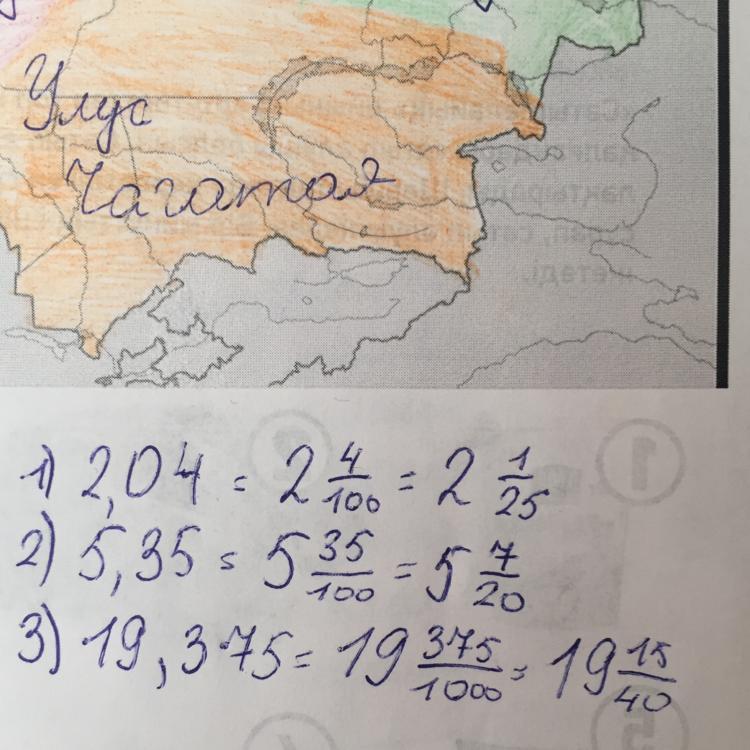 Улус
Чагатая
1) 2,04 = 2 4/100 = 2 1/25
2) 5,35 = 5 35/100 = 5 7/20
3) 19,375 = 19 375/1000 = 19 15/40